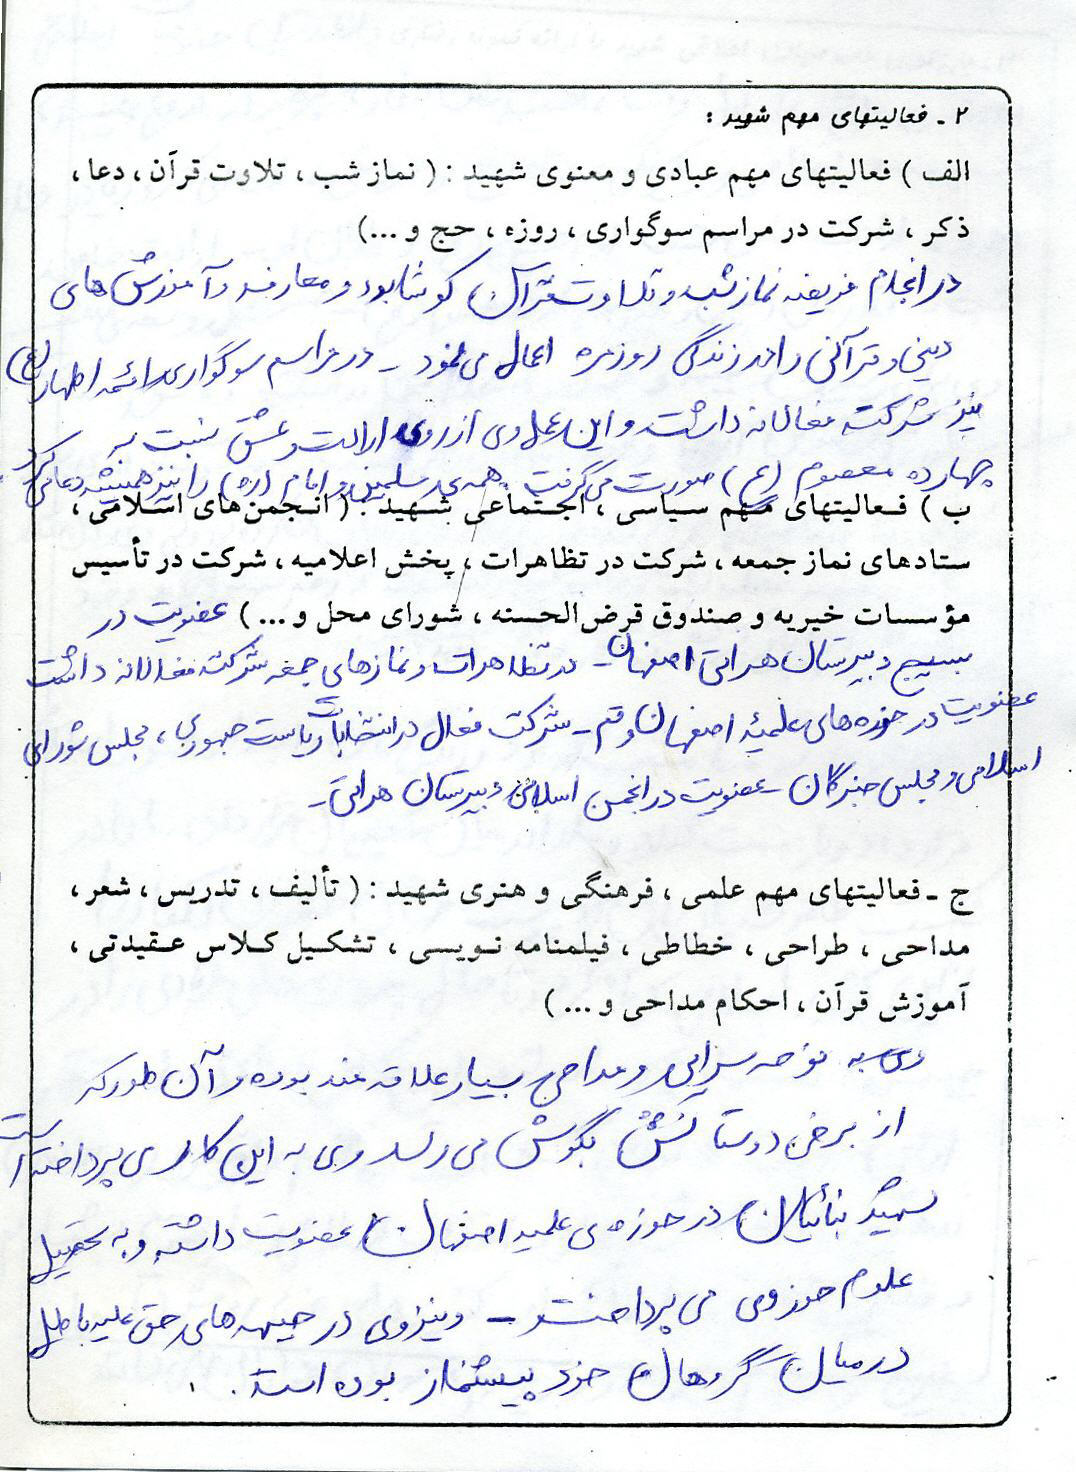 ۲ ـ فعالیتهای مهم شهید :
الف ) فعالیتهای مهم عبادی و معنوی شهید : ( نماز شب ، تلاوت قرآن ، دعا ،
ذکر ، شرکت در مراسم سوگواری ، روزه ، حج و ...)
در انجام فریضه نماز شب و تلاوت قرآن کوشا بود و معارف و آموزش های
دینی و قرآنی را در زندگی روزمره اعمال می نمود - در مراسم سوگواری ائمه اطهار (ع)
نیز شرکت فعالانه داشت و این عمل وی از روی ارادت و عشق نسبت به
چهارده معصوم (ع) صورت می گرفت . همه ی مسلمین و امام (ره) را نیز همیشه دعا می کرد
ب ) فعالیتهای مهم سیاسی ، اجتماعی شهید : ( انجمن های اسلامی ،
ستادهای نماز جمعه ، شرکت در تظاهرات ، پخش اعلامیه ، شرکت در تأسیس
مؤسسات خیریه و صندوق قرض الحسنه ، شورای محل و ... ) عضویت در
بسیج دبیرستان هراتی اصفهان - در تظاهرات و نمازهای جمعه شرکت فعالانه داشت
عضویت در حوزه های علمیهٔ اصفهان و قم - شرکت فعال در انتخابات ریاست جمهوری ، مجلس شورای
اسلامی و مجلس خبرگان - عضویت در انجمن اسلامی دبیرستان هراتی -
ج ـ فعالیتهای مهم علمی ، فرهنگی و هنری شهید : ( تألیف ، تدریس ، شعر ،
مداحی ، طراحی ، خطاطی ، فیلمنامه نویسی ، تشکیل کلاس عقیدتی ،
آموزش قرآن ، احکام مداحی و ... )
وی به نوحه سرایی و مداحی بسیار علاقه مند بوده و آن طور که
از برخی دوستانش بگوش می رسد وی به این کار می پرداخته است
شهید در حوزه ی علمیه اصفهان عضویت داشته و به تحصیل
علوم حوزوی می پرداخت - و نیز وی در جبهه های حق علیه باطل
در میان گروهان خود پیشنماز بوده است .